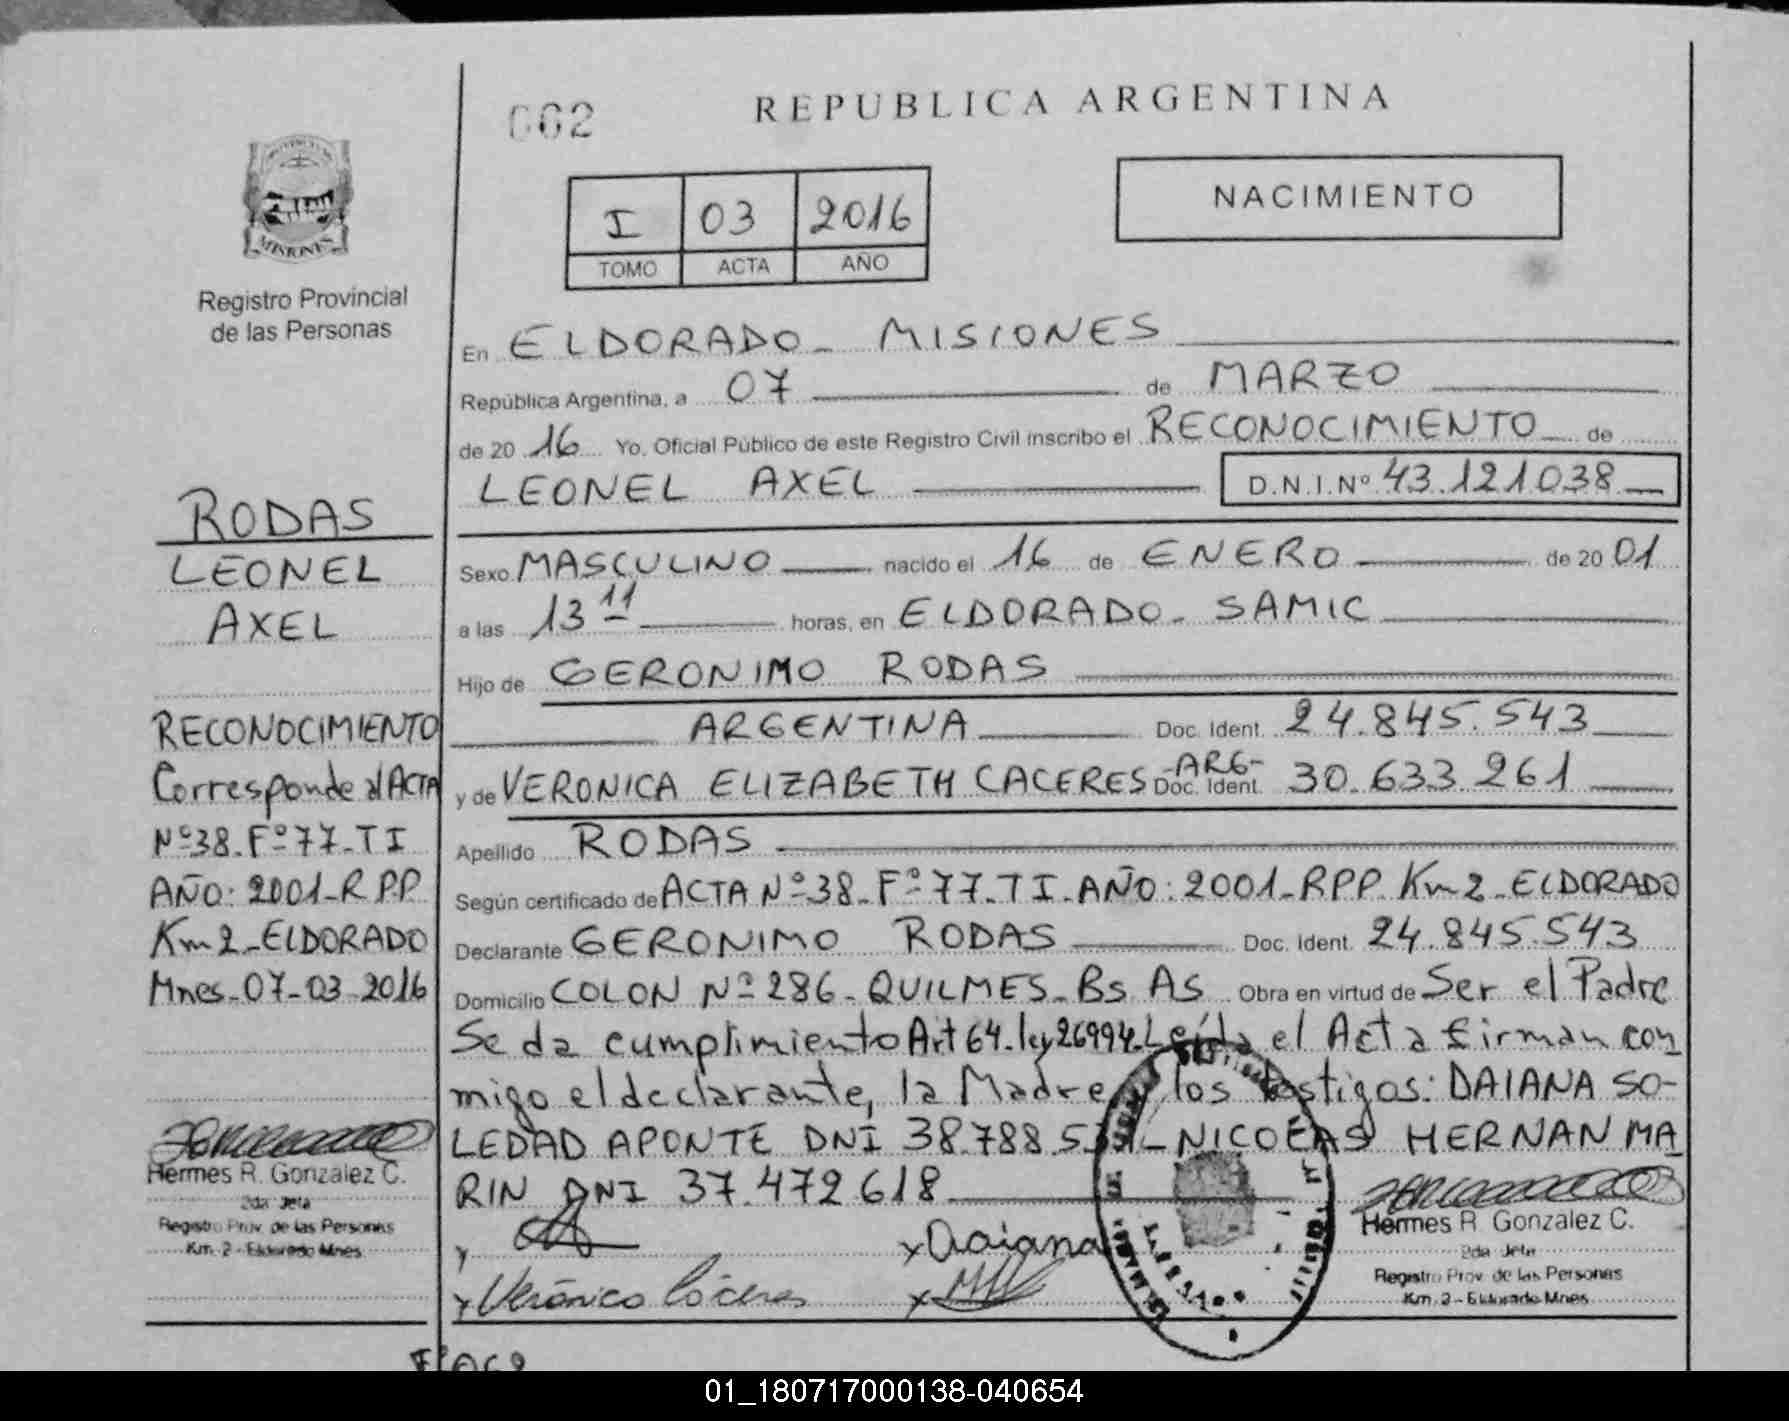 002
REPUBLICA ARGENTINA
NACIMIENTO
I 03 2016
TOMO ACTA AÑO
MISIONES
Registro Provincial
de las Personas
En ELDORADO - MISIONES
República Argentina, a 07 de MARZO
de 20 16 Yo, Oficial Público de este Registro Civil inscribo el RECONOCIMIENTO de
LEONEL AXEL D.N.I.Nº 43.121.038
Sexo MASCULINO nacido el 16 de ENERO de 20 01
a las 13 11 horas, en ELDORADO - SAMIC
Hijo de GERONIMO RODAS
ARGENTINA Doc. Ident. 24.845.543
y de VERONICA ELIZABETH CACERES -ARG- Doc. Ident. 30.633.261
Apellido RODAS
Según certificado de ACTA Nº 38 - Fº 77 - T I - AÑO: 2001 - RPP. Km 2 - ELDORADO
Declarante GERONIMO RODAS Doc. Ident. 24.845.543
Domicilio COLON Nº 286 - QUILMES - Bs AS Obra en virtud de Ser el Padre
Se da cumplimiento Art 64 - ley 26994. Leída el Acta firman con
migo el declarante, la Madre los testigos: DAIANA SO-
LEDAD APONTE DNI 38.788. - NICOLAS HERNAN MA
RIN DNI 37.472 618
x Daiana
x Verónica Cáceres
Hermes R. Gonzalez C.
2da Jefa
Registro Prov. de las Personas
Km. 2 - Eldorado Mnes
RODAS
LEONEL
AXEL
RECONOCIMIENTO
Corresponde al ACTA
Nº 38 - Fº 77 - T I
AÑO: 2001 - R.P.P.
Km 2 - ELDORADO
Mnes - 07 - 03 - 2016
Hermes R. Gonzalez C.
2da Jefa
Registro Prov. de las Personas
Km. 2 - Eldorado Mnes
01_180717000138-040654